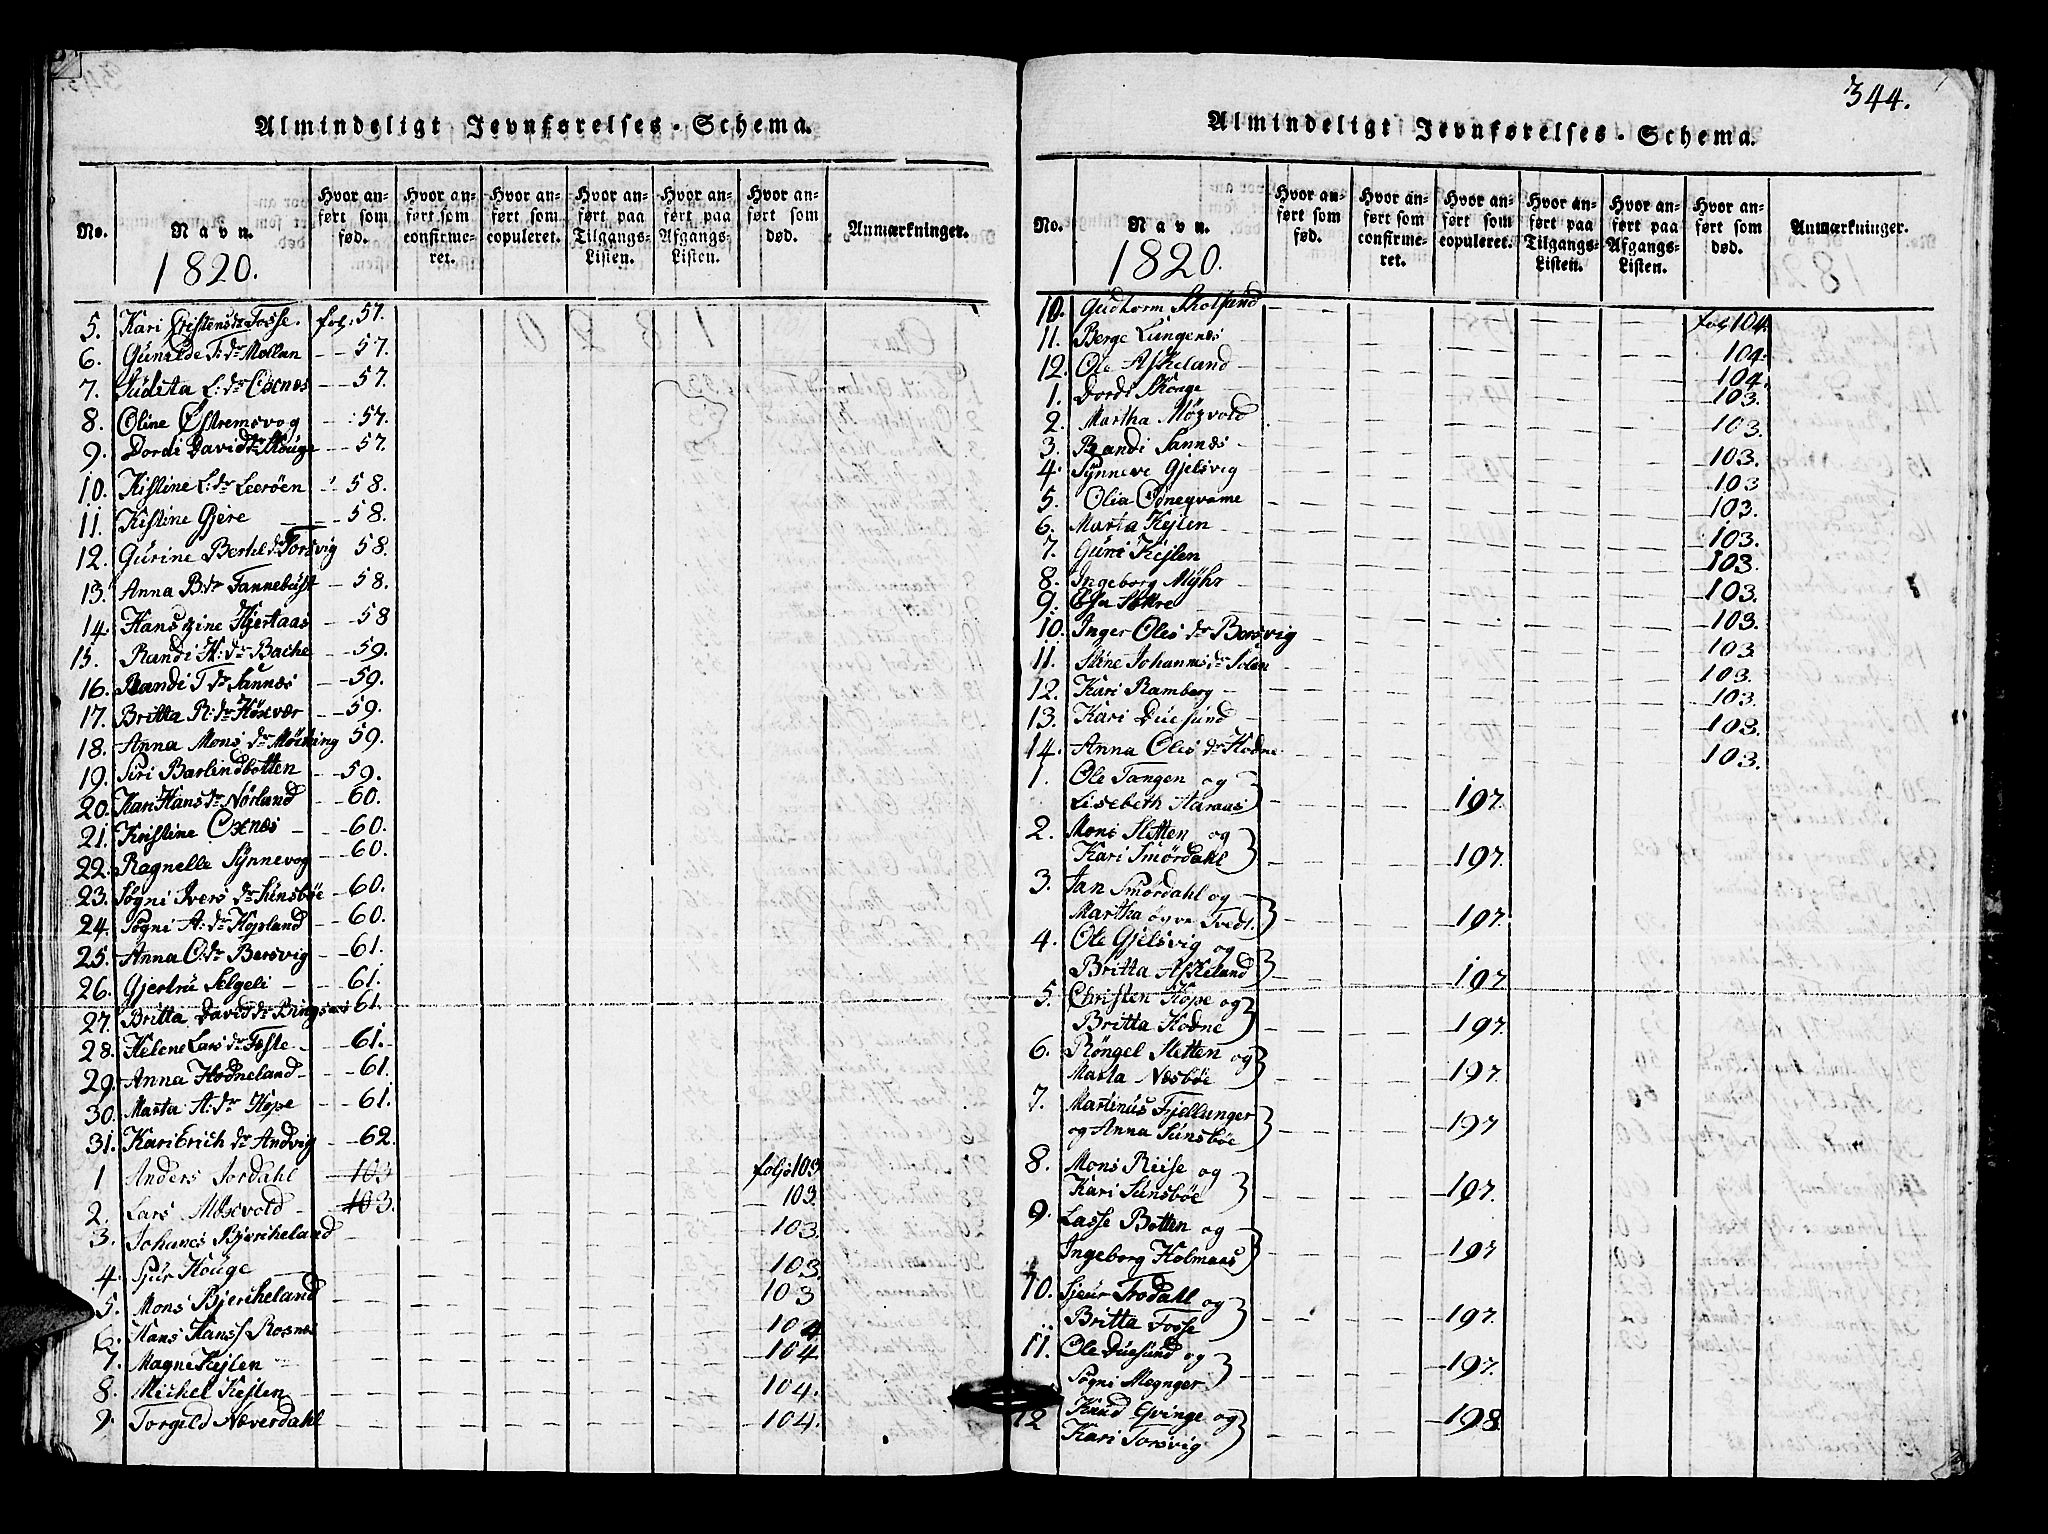 Almindeligt Jevnførelses-Schema.
No. Navn. Hvor anført som fød. Hvor anført som confirmeret. Hvor anført som copuleret. Hvor anført paa Tilgangs-Listen. Hvor anført paa Afgangs-Listen. Hvor anført som død. Anmærkninger.
1820.
5. Kari Cristensdr Fosse. fol: 57.
6. Gunilde T:dr Mollan 57.
7. Judita L:dr Oxnæs 57.
8. Oline Østremsvog 57.
9. Dordi Davidsdr Houge 57.
10. Kistine L:dr Leerøen 58.
11. Kistine Gjere 58.
12. Gurine Berthel dr Torsvig 58.
13. Anna B.dr Tannebust 58.
14. Hansine Hjertaas 58
15. Randi H:dr Bache 59.
16. Randi T dr Sannæs 59.
17. Britta R:dr Høsvær 59.
18. Anna Mons dr Møcking 59.
19. Siri Barlindbotten 59.
20. Kari Hans dr Nørland 60.
21. Kristine Oxnæs 60.
22. Ragnelle Synnevog 60.
23. Søgni Ivers dr Sunsbøe 60.
24. Søgni A:dr Hopland 60.
25. Anna O:dr Bersvig 61.
26. Gjertru Selgeli 61.
27. Britta David dr 61.
28. Helene Lars dr Feste 61.
29. Anna Hodneland 61.
30. Marta A:dr Hope 61.
31. Kari Erich dr Andvig 62.
1 Anders Jordahl 103 foljo 103
2. Lars Møxvold 103. 103.
3. Johanes Bjercheland 103.
4. Sjur Houge 103.
5. Mons Bjercheland 103
6. Hans Hanss Rosnes 104
7. Magne Kejlen 104
8. Michel Kejlen 104.
9. Torgild Næverdahl 104.
344.
Almindeligt Jevnførelses-Schema.
No. Navn. Hvor anført som fød. Hvor anført som confirmeret. Hvor anført som copuleret. Hvor anført paa Tilgangs-Listen. Hvor anført paa Afgangs-Listen. Hvor anført som død. Anmærkninger.
1820.
10. Gudtorm fol 104.
11. Berge Lungenæs 104.
12. Ole Askeland 104.
1. Dordi Houge 103.
2. Martha Møxvold 103.
3. Randi Sannæs 103.
4. Synneve Gjelsvig 103
5. Olia 103.
6. Marta Kejlen 103.
7. Guni Kejlen 103.
8. Ingeborg Myhr 103.
9. 103.
10. Inger Oles dr Bersvig 103
11. Stine Johannesdr Solem 103.
12. Kari Ramberg 103.
13. Kari Duesund 103.
14. Anna Oles dr Hodne 103.
1. Ole Tangen og
Lisebeth Aaraas 197.
2. Mons Sletten og
Kari Smørdahl 197.
3. Jan Smørdahl og
Martha øvre Tvedt. 197.
4. Ole Gjelsvig og
Britta Askeland 197.
5. Christen Hope og
Britta Hodne 197.
6. Røngel Sletten og
Marta Næsbøe 197.
7. Martinus Fjellanger
og Anna Sunsbøe 197
8. Mons Riise og
Kari Sunsbøe 197.
9. Lasse Botten og
Ingeborg Holmaas 197
10. Sjeur Trodahl og
Britta Fosse 197.
11. Ole Duesund og
Søgni Megnger 197.
12 Knud Qvinge og
Kari Torsvig 198.